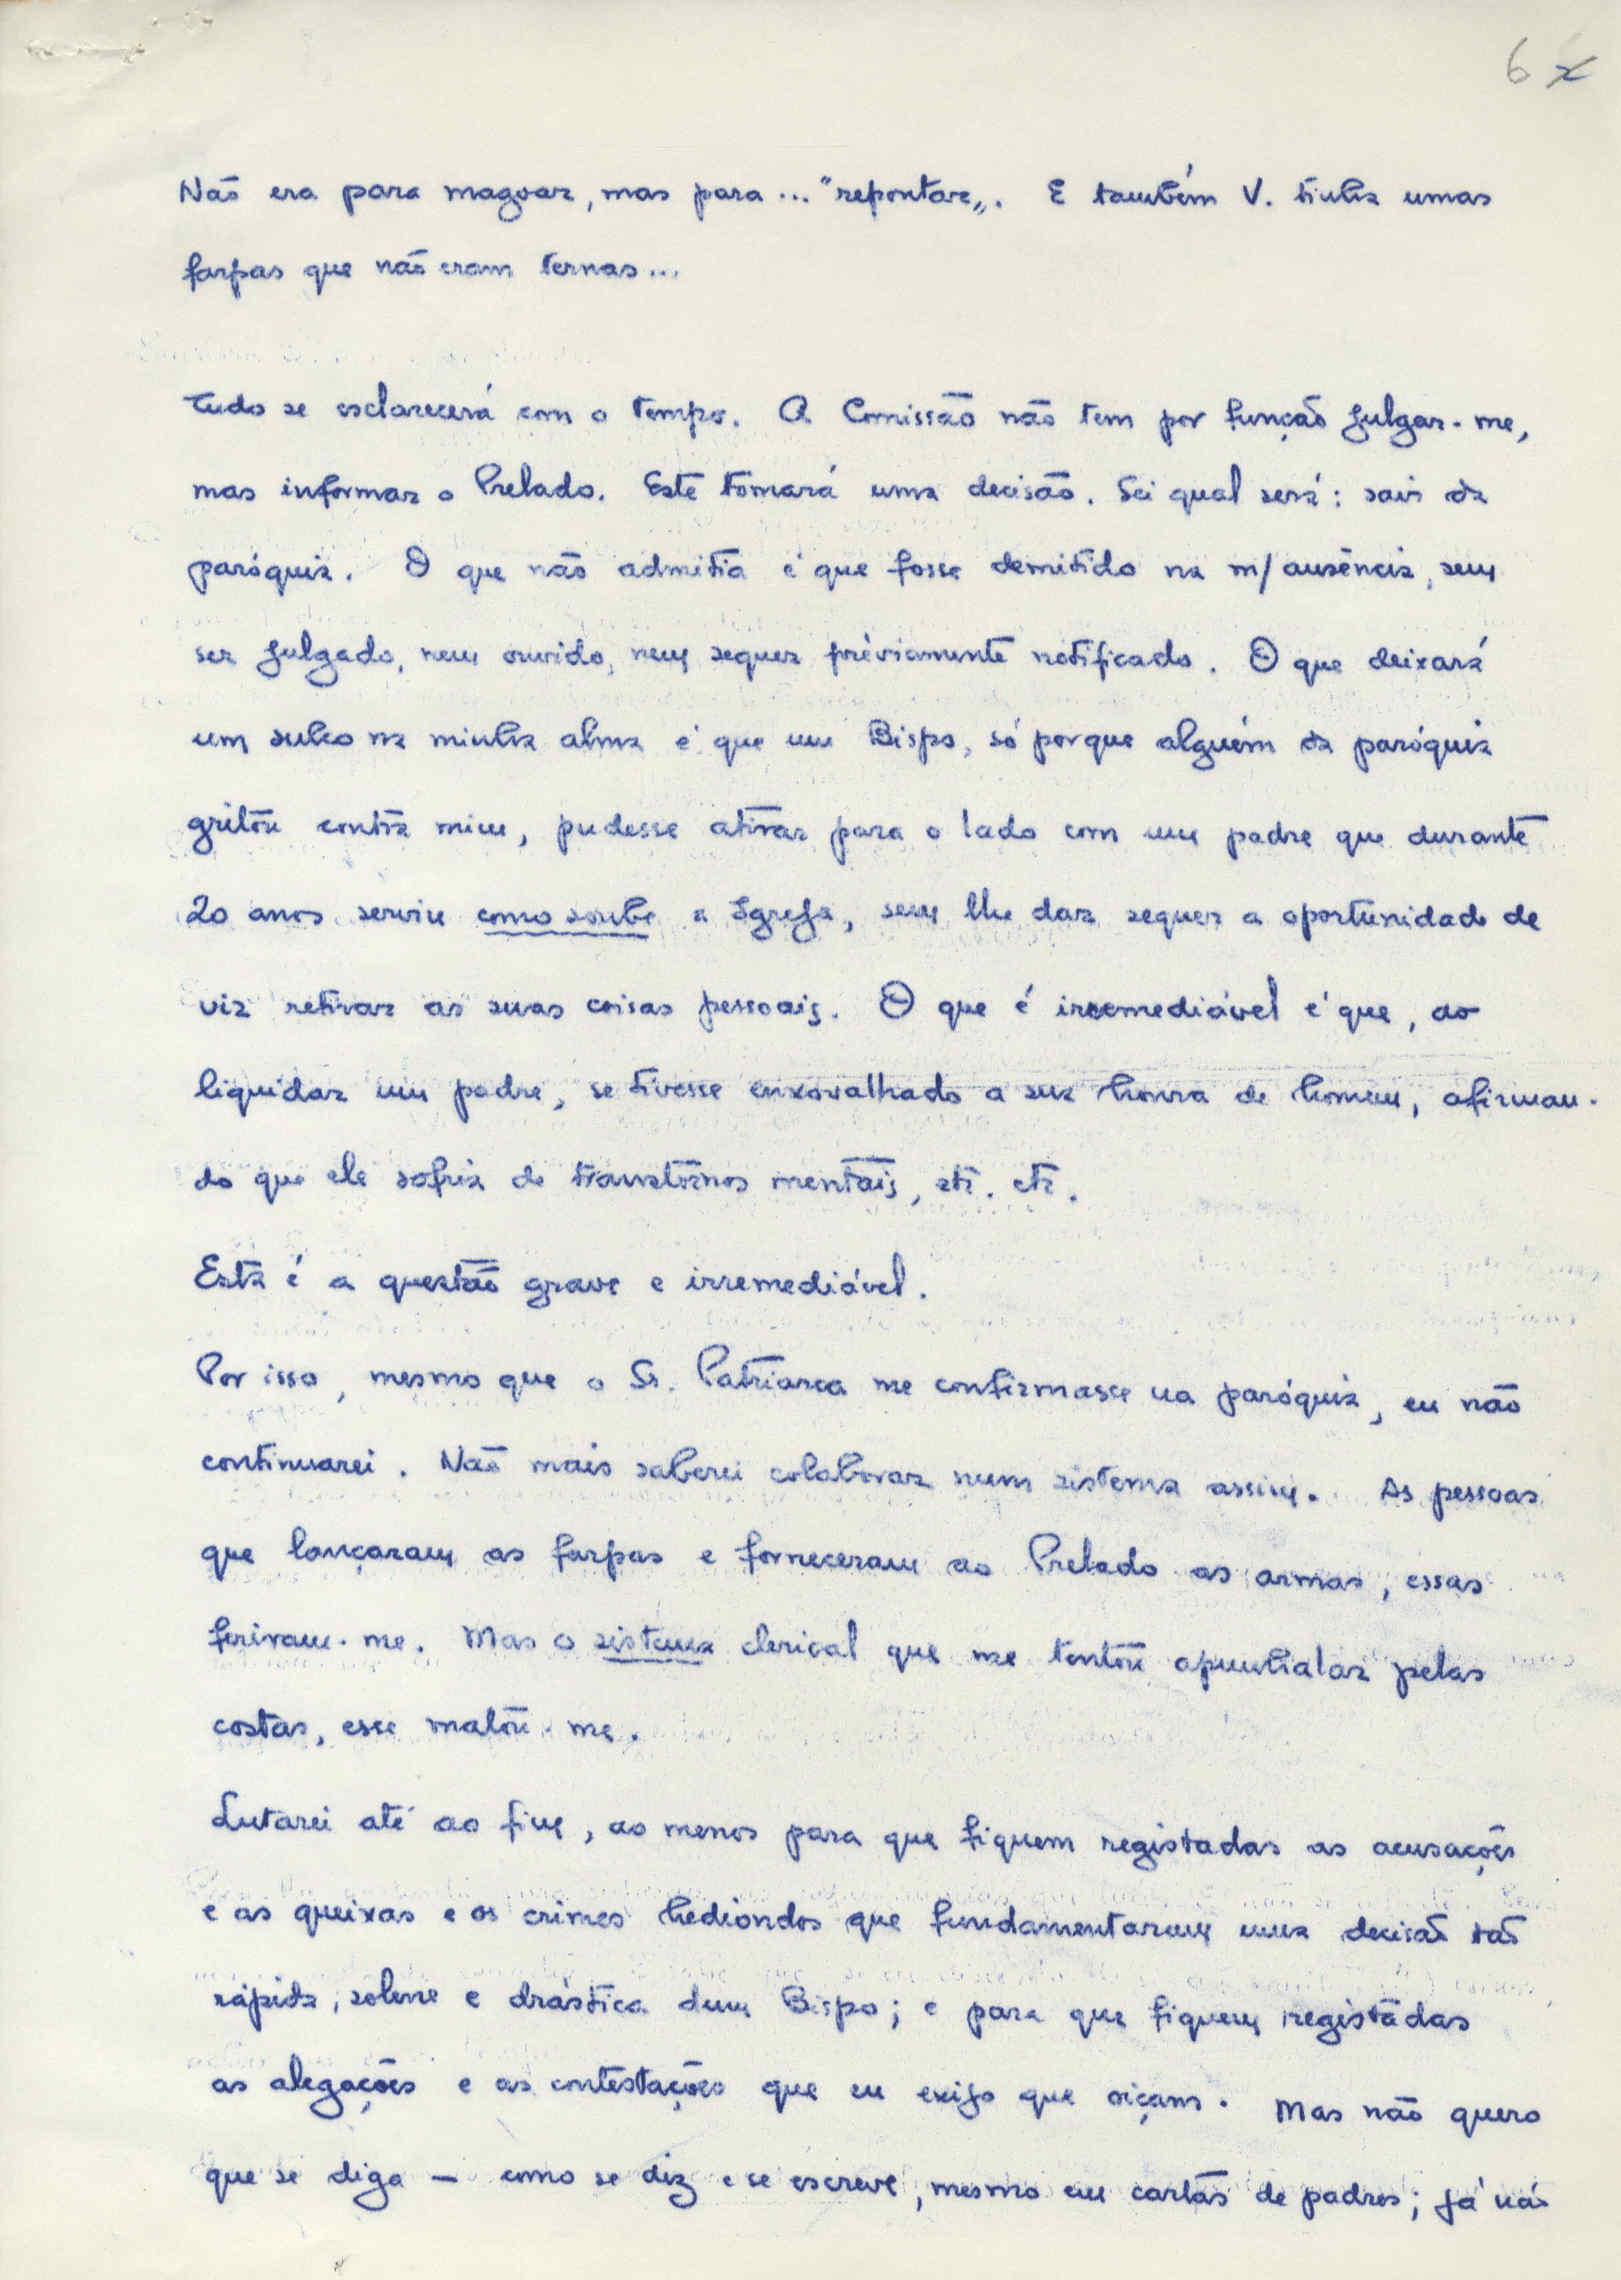 6 x
Não era para magoar, mas para ... "repontar„. E também V. tinha umas
farpas que não eram ternas...
Tudo se esclarecerá com o tempo. A Comissão não tem por função julgar-me,
mas informar o Prelado. Este tomará uma decisão. Sei qual será: sair da
paróquia. O que não admitia é que fosse demitido na m/ ausência, sem
ser julgado, nem ouvido, nem sequer prèviamente notificado. O que deixará
um sulco na minha alma é que um Bispo, só porque alguém da paróquia
gritou contra mim, pudesse atirar para o lado com um padre que durante
20 anos serviu como soube a Igreja, sem lhe dar sequer a oportunidade de
vir retirar as suas coisas pessoais. O que é irremediável é que, ao
liquidar um padre, se tivesse enxovalhado a sua honra de homem, afirman-
do que ele sofria de transtornos mentais, etc. etc.
Esta é a questão grave e irremediável.
Por isso, mesmo que o Sr. Patriarca me confirmasse na paróquia, eu não
continuarei. Não mais saberei colaborar num sistema assim. As pessoas
que lançaram as farpas e forneceram ao Prelado as armas, essas
feriram-me. Mas o sistema clerical que me tentou apunhalar pelas
costas, esse matou-me.
Lutarei até ao fim, ao menos para que fiquem registadas as acusações
e as queixas e os crimes hediondos que fundamentaram uma decisão tão
rápida, solene e drástica dum Bispo; e para que fiquem registadas
as alegações e as contestações que eu exijo que oiçam. Mas não quero
que se diga — como se diz e se escreve, mesmo em cartas de padres; já não